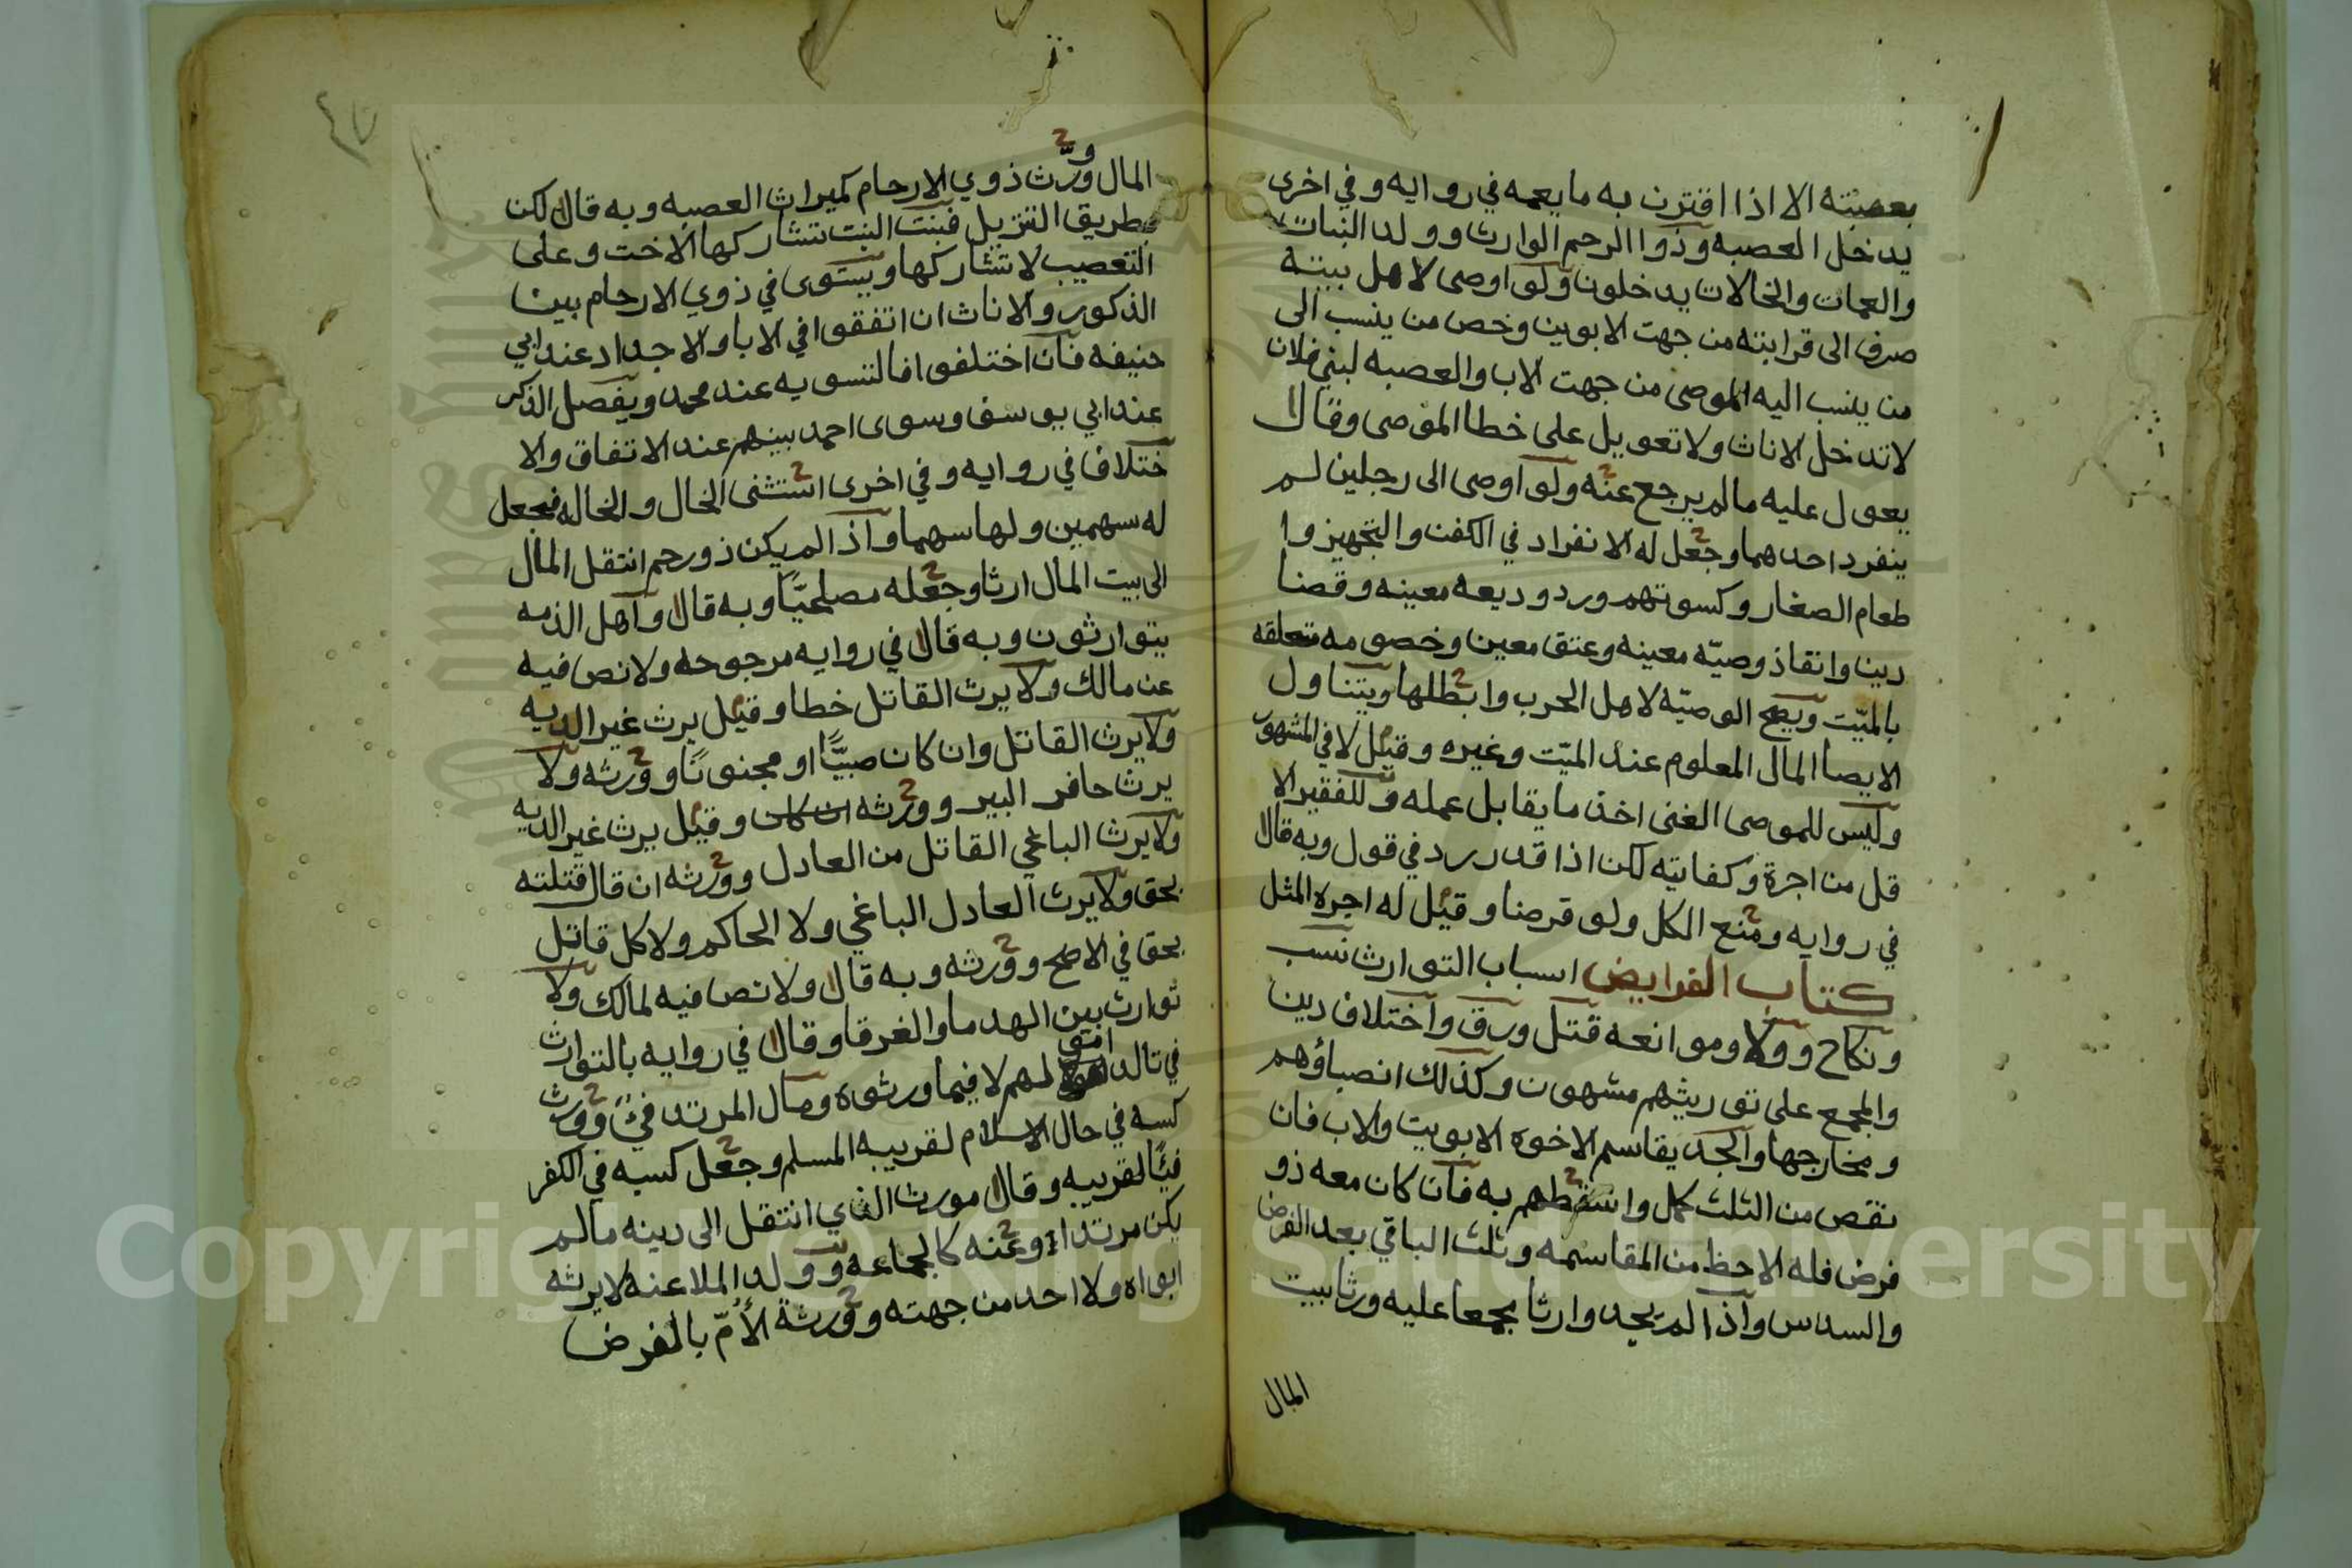 بعصبته الا اذا اقترن به ما يعمه في روايه وفي اخرى
يدخل العصبه وذوا الرحم الوارث وولد البنات
والعمات والخالات يدخلون ولو اوصى لاهل بيته
صرف الى قرابته من جهت الابوين وخص من ينسب الى
من ينسب اليه الموصى من جهت الاب والعصبه لبني فلان
لا تدخل الاناث ولا تعويل على خطا الموصى وقالا
يعول عليه مالم يرجع عنه ولو اوصى الى رجلين لم
ينفرد احدهما وجعل له الانفراد في الكفن والتجهيز وا
طعام الصغار وكسوتهم ورد وديعه معينه وقضا
دين وانفاذ وصيّه معينه وعتق معين وخصومه متعلقه
بالميّت ويصح الوصيّه لاهل الحرب وابطلها ويتناول
الايصا المال المعلوم عند الميّت وغيره وقيل لا في المشهور
وليس للموصى الغنى اخذ ما يقابل عمله وللفقير الا
قل من اجرة وكفايته لكن اذا قدر رد في قول وبه قالا
في روايه ومنع الكل ولو قرضا وقيل له اجره المثل
كتاب الفرايض اسباب التوارث نسب
ونكاح وولا وموانعه قتل ورق واختلاف دين
والمجمع على توريثهم مشهورن وكذلك انصباؤهم
ومخارجها والجد يقاسم الاخوه الابويت والاب فان
نقص من الثلث كمل واسقطهم به فان كان معه ذو
فرض فله الاحظ من المقاسمه وثلث الباقي بعد الفرض
والسدس واذا لم يجد وارثا مجمعا عليه ورثا بيت
المال
المال وورّث ذوي الارحام كميراث العصبه وبه قالا لكن
بطريق التنزيل فبنت البنت تشاركها الاخت وعلى
التعصيب لا تشاركها ويستوى في ذوي الارحام بين
الذكور والاناث ان اتفقوا في الابا والاجداد عند ابي
حنيفه فان اختلفوا فالتسويه عند محمد ويفصل الذكر
عند ابي يوسف وسوى احمد بينهم عند الاتفاق والا
ختلاف في روايه وفي اخرى استثنى الخال والخاله فجعل
له سهمين ولها سهما واذا لم يكن ذو رحم انتقل المال
الى بيت المال ارثا وجعله مصلحيّا وبه قالا واهل الذمه
يتوارثون وبه قالا في روايه مرجوحه ولا نص فيه
عن مالك ولا يرث القاتل خطا وقيل يرث غير الديه
ولا يرث القاتل وان كان صبيّا او مجنونا وورثه ولا
يرث حافر البير وورثه ان كان وقيل يرث غير الديه
ولا يرث الباغي القاتل من العادل وورثه ان قال قتلته
بحق ولا يرث العادل الباغي ولا الحاكم ولا كل قاتل
بحق في الاصح وورثه وبه قالا ولا نص فيه لمالك ولا
توارث بين الهدما والغرقا وقالا في روايه بالتوارث
في تالد اموالهم لا فيما ورثوه ومال المرتد فئ وورث
كسبه في حال الاسلام لقريبه المسلم وجعل كسبه في الكفر
فيئا لقريبه وقالا مورث الذي انتقل الى دينه مالم
يكن مرتدا وعنه كالجماعه وولد الملاعنه لا يرثه
ابواه ولا احد من جهته وورثة الأمّ بالفرض